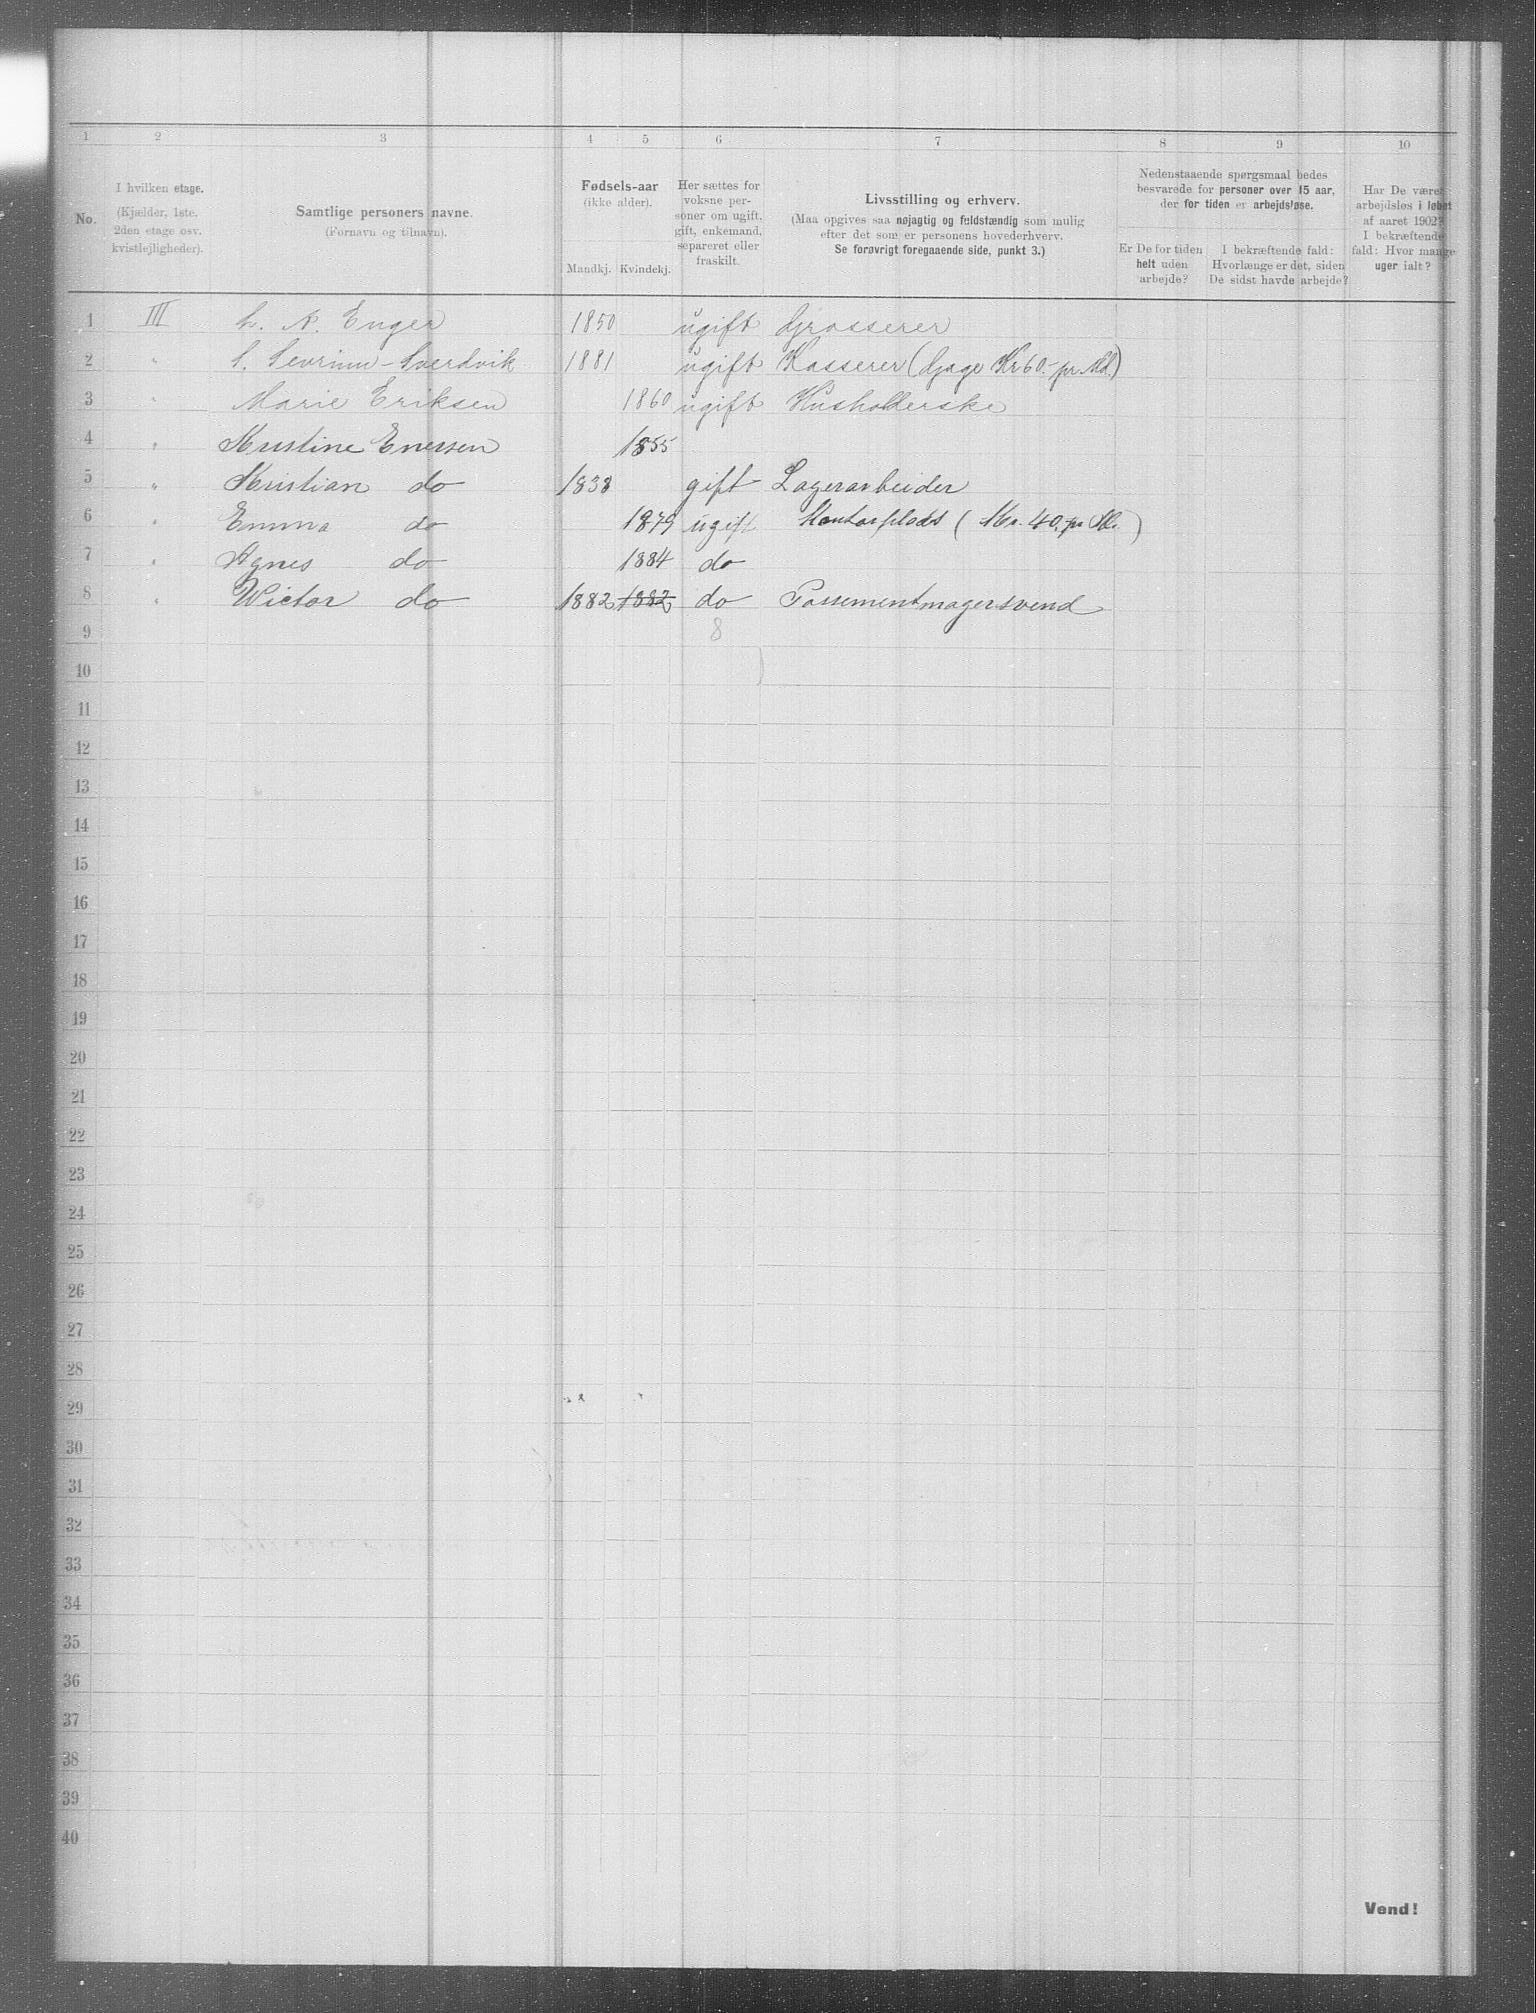 1 2 3 4 5 6 7 8 9 10
No.
I hvilken etage.
(Kjælder, 1ste,
2den etage osv.
kvistlejligheder).
Samtlige personers navne.
(Fornavn og tilnavn).
Fødsels-aar
(ikke alder).
Mandkj. Kvindekj.
Her sættes for
voksne per-
soner om ugift,
gift, enkemand,
separeret eller
fraskilt.
Livsstilling og erhverv.
(Maa opgives saa nøjagtig og fuldstændig som mulig
efter det som er personens hovederhverv.
Se forøvrigt foregaaende side, punkt 3.)
Nedenstaaende spørgsmaal bedes
besvarede for personer over 15 aar,
der for tiden er arbejdsløse.
Er De for tiden
helt uden
arbejde?
I bekræftende fald:
Hvorlænge er det, siden
De sidst havde arbejde?
Har De været
arbejdsløs i løbet
af aaret 1902?
I bekræftende
fald: Hvor mange
uger ialt?
1 III A. Enger 1850 ugift Grosserer
2 " S. Sevrinn-Sverdvik 1881 ugift Kasserer (Gage Kr 60.- pr. Md.)
3 " Marie Eriksen 1860 ugift Husholderske
4 " Kristine Enersen 1855
5 " Kristian do 1838 gift Lagerarbeider
6 " Emma do 1879 ugift Kontorplads (Kr. 40, pr )
7 " Agnes do 1884 do
8 " Wictor do 1882 1882 do Possementmagersvend
9 8
10
11
12
13
14
15
16
17
18
19
20
21
22
23
24
25
26
27
28
29
30
31
32
33
34
35
36
37
38
39
40
Vend!